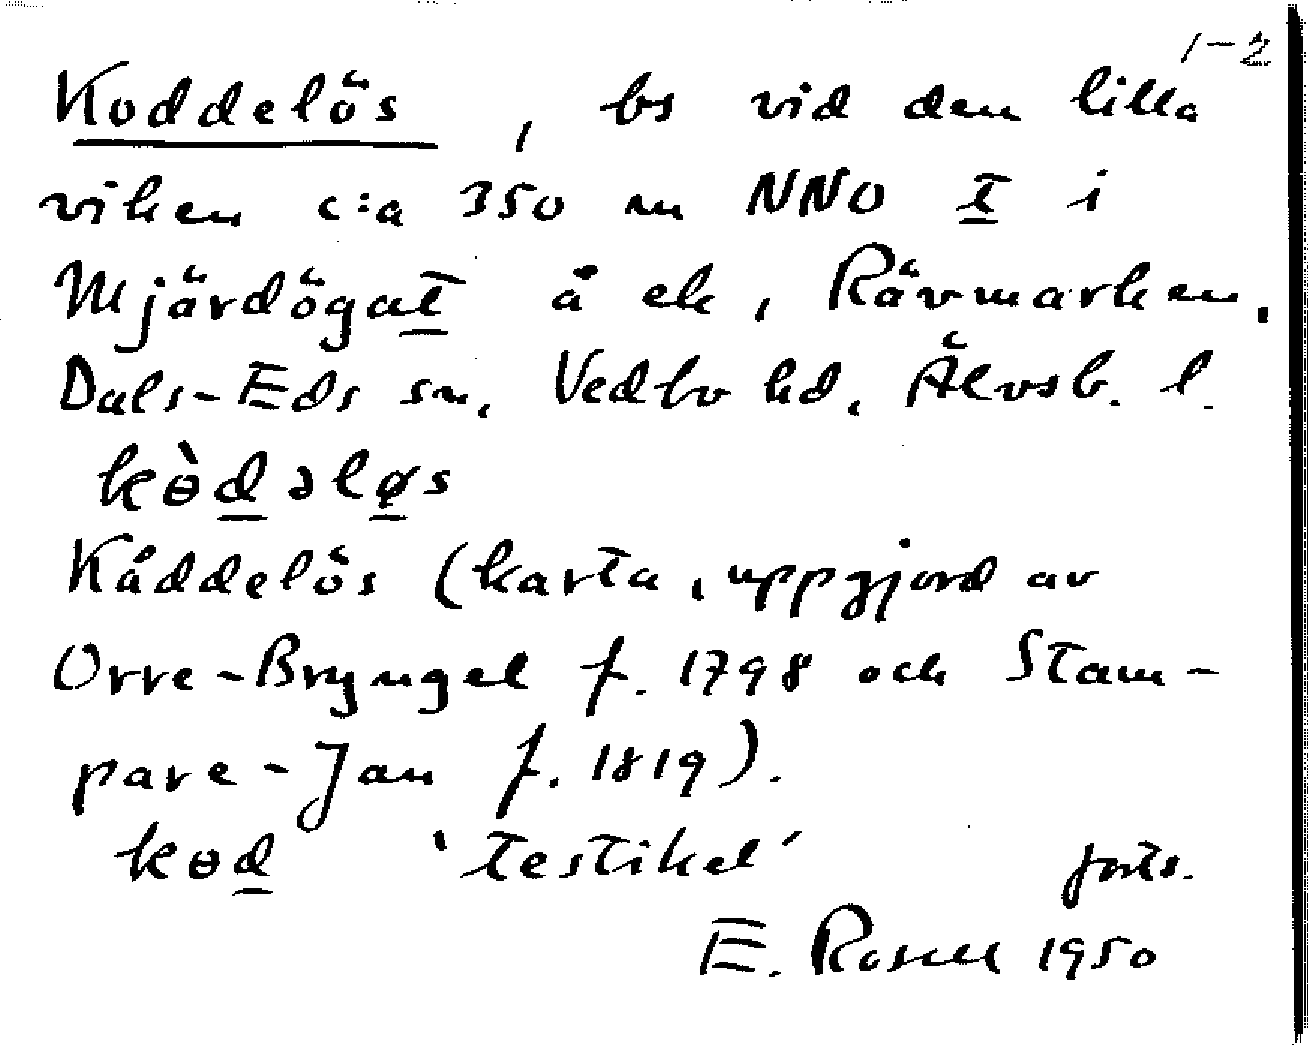 1-2
Koddelös, bs vid den lilla
viken c:a 350 m NNO t i
Mjärdögat å ek, Rävmarken,
Dals-Eds sn, Vedbo hd, Älvsb. l.
kɵ̀dəløs
Kåddelös (karta, uppgjord av
Orre-Bryngel f. 1798 och Stam-
pare-Jan f. 1819).
kɵd 'testikel' forts.
E. Rosell 1950